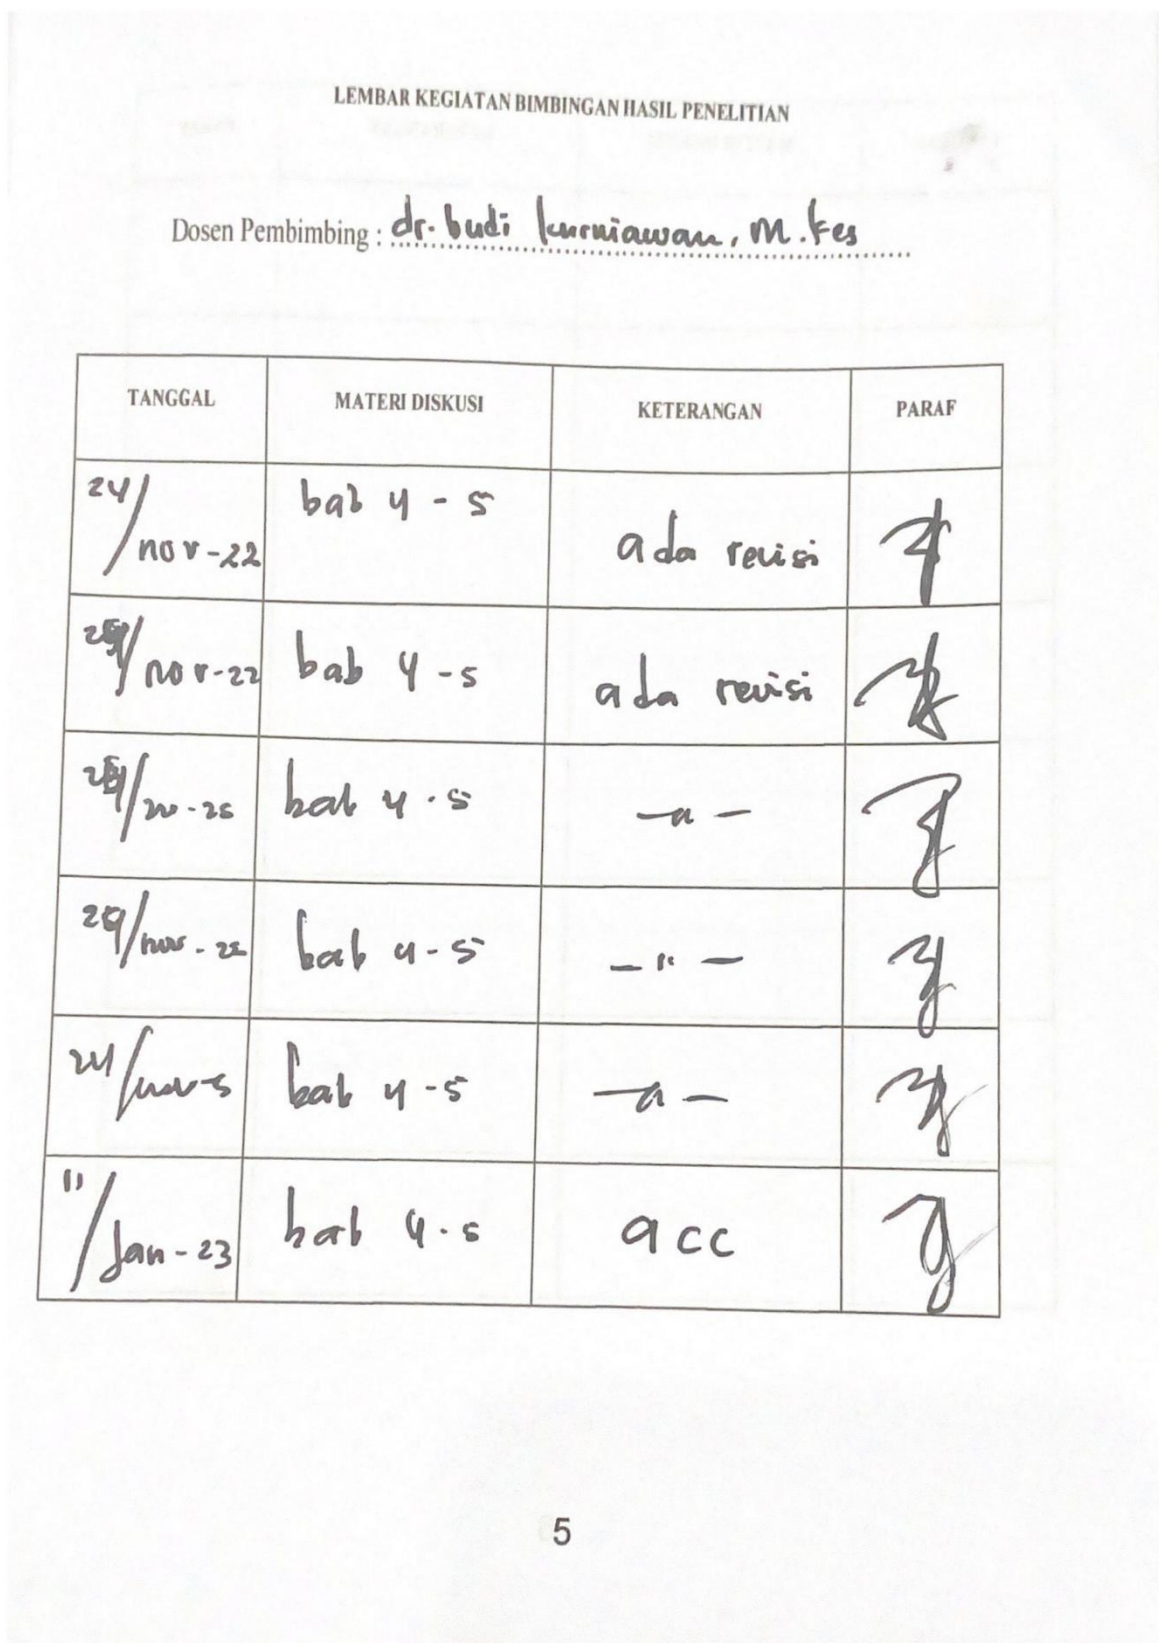 LEMBAR KEGIATAN BIMBINGAN HASIL PENELITIAN
Dosen Pembimbing : dr. budi kurniawan, M.Kes
TANGGAL MATERI DISKUSI KETERANGAN PARAF
24/nov-22 bab 4-5 ada revisi
/nov-22 bab 4-5 ada revisi
bab 4-5 -"-
29/nov-22 bab 4-5 -"-
bab 4-5 -"-
11/Jan-23 bab 4-5 acc
5